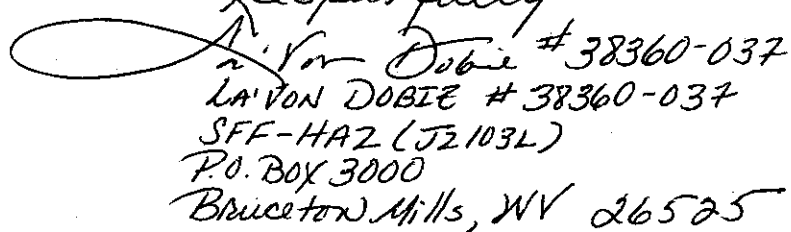 Respectfully
La'Von Dobie #38360-037
LA'VON DOBIE # 38360-037
SFF-HAZ (J2103L)
P.O. BOX 3000
Bruceton Mills, WV 26525